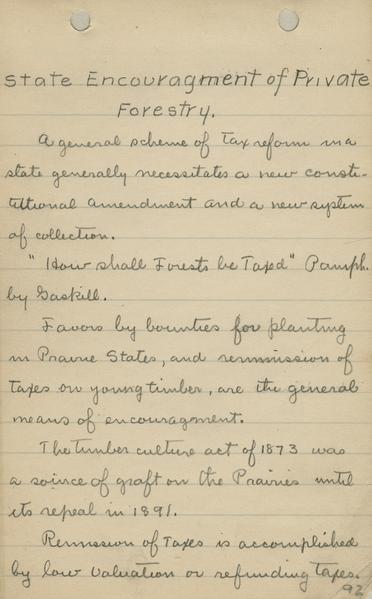 State Encouragment of Private
Forestry.
A general scheme of Tax reform in a
state generally necessitates a new consti-
tutional amendment and a new system
of collection.
"How shall Forests be Taxed" Pamph.
by Gaskill.
Favors by bounties for planting
in Prairie States, and remmission of
Taxes on young timber, are the general
means of encouragment.
The timber culture act of 1873 was
a soirce of graft on the Prairies until
its repeal in 1891.
Remission of Taxes is accomplished
by low valuation or refunding taxes.
92